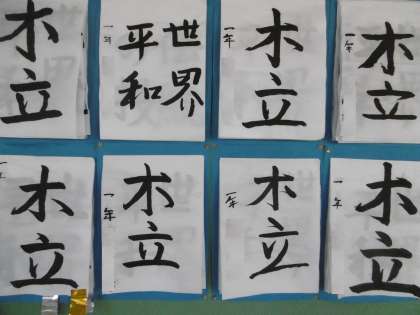 木立
世界
平和
一年
木立
一年
木立
一年
木立
一
木立
一年
木立
一年
木立
一年